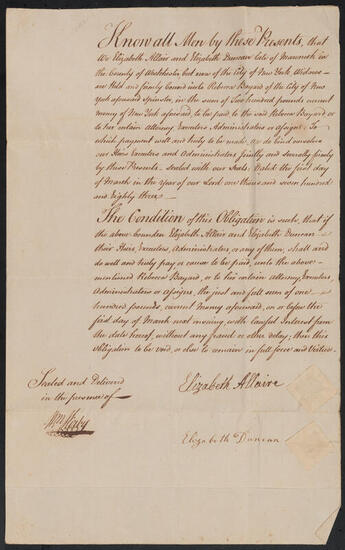 Know all Men by these Presents, that
We Elizabeth Allair and Elizabeth Duncan late of Mamaneck in
the County of Westchester but now of the City of New York Widows
are Held and firmly Bound unto Rebecca Bayard of the City of New
York aforesaid Spinster, in the sum of Two hundred pounds current
money of New York aforesaid, to be paid to the said Rebecca Bayard or
to her certain Attorney Executors Administrators or Assigns. To
which payment well and truly to be made, we do bind ourselves
our Heirs Executors and Administrators jointly and severally firmly
by these Presents. Sealed with our Seals. Dated the first day
of March in the Year of our Lord one thousand seven hundred
and Eighty three
The Condition of this Obligation is such, that if
the above bounden Elizabeth Allair and Elizabeth Duncan
their Heirs, Executors, Administrators or any of them, shall and
do well and truly pay or cause to be paid, unto the above
mentioned Rebecca Bayard, or to her certain Attorney, Executors,
Administrators or Assigns, the just and full sum of one
hundred pounds, current money aforesaid, on or before the
first day of March next ensuing, with lawful Interest from
the date hereof, without any fraud or other delay; then this
Obligation to be void, or else to remain in full force and Virtue.
Sealed and Delivered
in the presence of
Elizabeth Allaire
Elizabeth Duncan